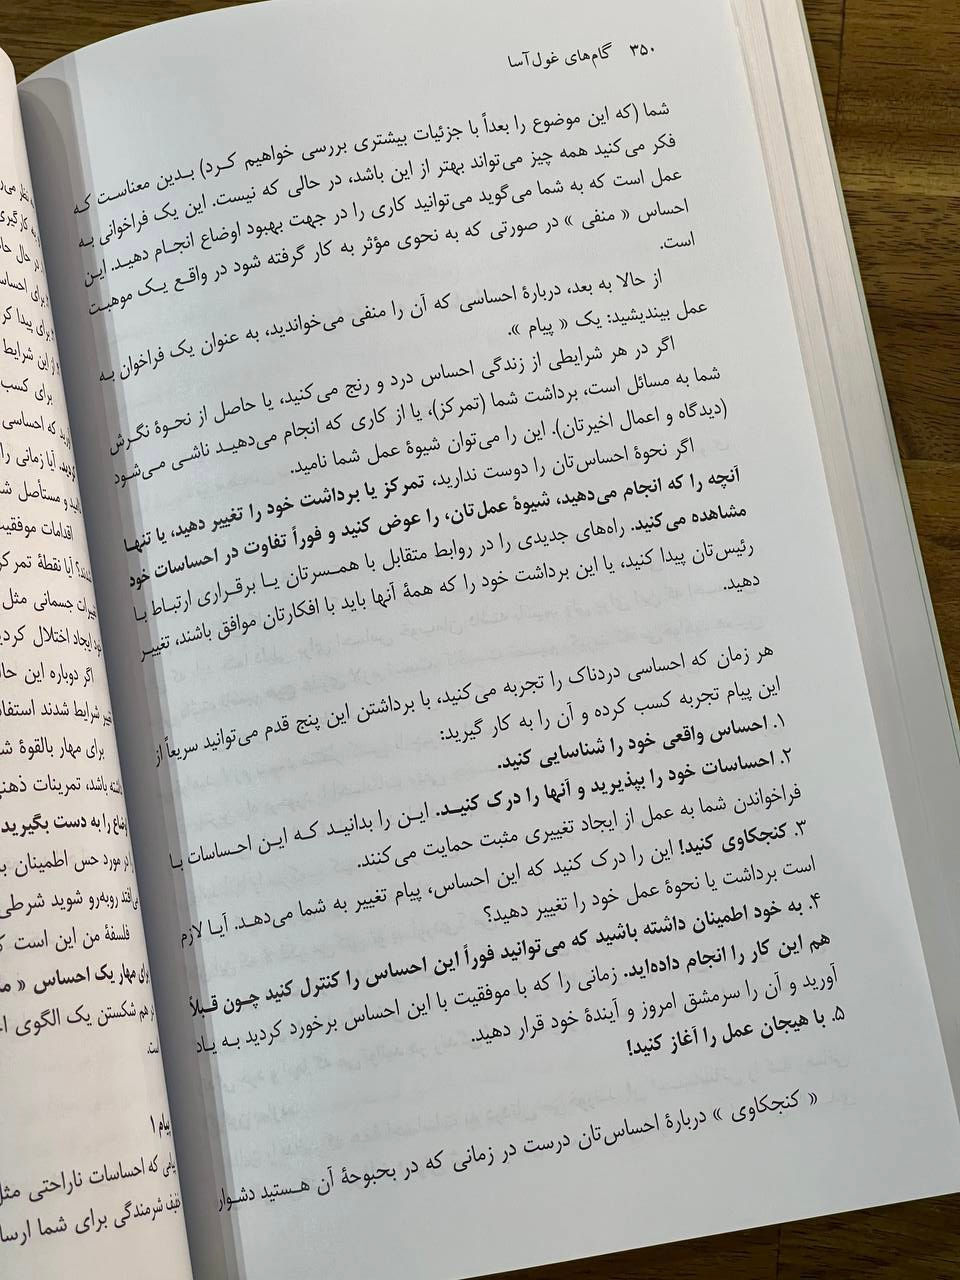 ۳۵۰ گام‌های غول‌آسا
شما (که این موضوع را بعداً با جزئیات بیشتری بررسی خواهیم کرد) بدین معناست که
فکر می‌کنید همه چیز می‌تواند بهتر از این باشد، در حالی که نیست. این یک فراخوانی به
عمل است که به شما می‌گوید می‌توانید کاری را در جهت بهبود اوضاع انجام دهید. این
احساس « منفی » در صورتی که به نحوی مؤثر به کار گرفته شود در واقع یک موهبت
است.
از حالا به بعد، دربارهٔ احساسی که آن را منفی می‌خواندید، به عنوان یک فراخوان به
عمل بیندیشید: یک « پیام ».
اگر در هر شرایطی از زندگی احساس درد و رنج می‌کنید، یا حاصل از نحوهٔ نگرش
شما به مسائل است، برداشت شما (تمرکز)، یا از کاری که انجام می‌دهید ناشی می‌شود
(دیدگاه و اعمال اخیرتان). این را می‌توان شیوهٔ عمل شما نامید.
اگر نحوهٔ احساس‌تان را دوست ندارید، تمرکز یا برداشت خود را تغییر دهید، یا تنها
آنچه را که انجام می‌دهید، شیوهٔ عمل‌تان، را عوض کنید و فوراً تفاوت در احساسات خود
مشاهده می‌کنید. راه‌های جدیدی را در روابط متقابل با همسرتان یا برقراری ارتباط با
رئیس‌تان پیدا کنید، یا این برداشت خود را که همهٔ آنها باید با افکارتان موافق باشند، تغییر
دهید.
هر زمان که احساسی دردناک را تجربه می‌کنید، با برداشتن این پنج قدم می‌توانید سریعاً از
این پیام تجربه کسب کرده و آن را به کار گیرید:
۱. احساس واقعی خود را شناسایی کنید.
۲. احساسات خود را بپذیرید و آنها را درک کنید. این را بدانید که این احساسات با
فراخواندن شما به عمل از ایجاد تغییری مثبت حمایت می‌کنند.
۳. کنجکاوی کنید! این را درک کنید که این احساس، پیام تغییر به شما می‌دهد. آیا لازم
است برداشت یا نحوهٔ عمل خود را تغییر دهید؟
۴. به خود اطمینان داشته باشید که می‌توانید فوراً این احساس را کنترل کنید چون قبلاً
هم این کار را انجام داده‌اید. زمانی را که با موفقیت با این احساس برخورد کردید به یاد
آورید و آن را سرمشق امروز و آیندهٔ خود قرار دهید.
۵. با هیجان عمل را آغاز کنید!
« کنجکاوی » دربارهٔ احساس‌تان درست در زمانی که در بحبوحهٔ آن هستید دشوار